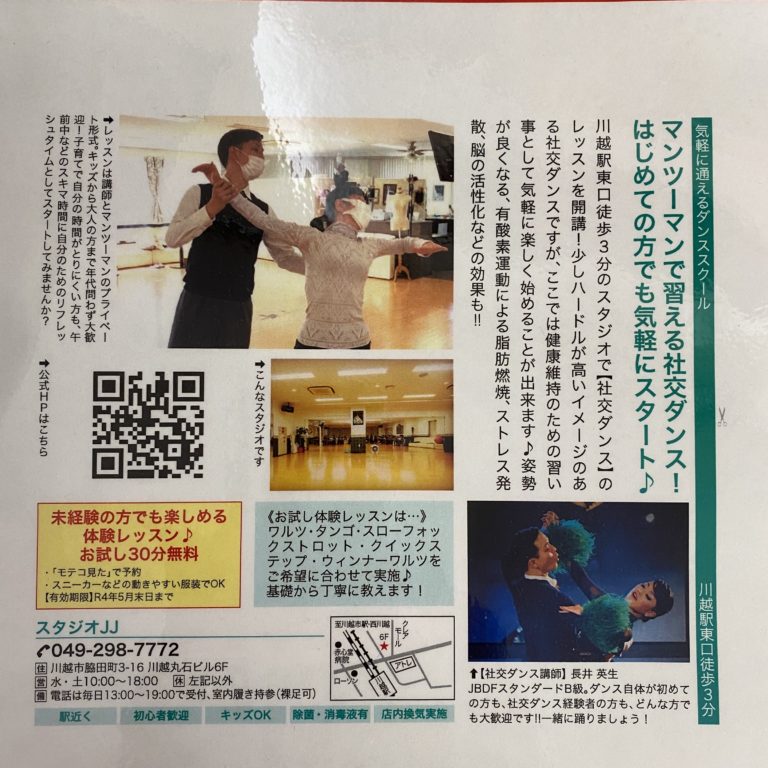 気軽に通えるダンススクール
川越駅東口徒歩3分
マンツーマンで習える社交ダンス!
はじめての方でも気軽にスタート♪
川越駅東口徒歩3分のスタジオで【社交ダンス】の
レッスンを開講!少しハードルが高いイメージのあ
る社交ダンスですが、ここでは健康維持のための習い
事として気軽に楽しく始めることが出来ます♪姿勢
が良くなる、有酸素運動による脂肪燃焼、ストレス発
散、脳の活性化などの効果も!!
➡レッスンは講師とマンツーマンのプライベー
ト形式。キッズから大人の方まで年代問わず大歓
迎!子育てで自分の時間がとりにくい方も、午
前中などのスキマ時間に自分のためのリフレッ
シュタイムとしてスタートしてみませんか?
➡こんなスタジオです
➡公式HPはこちら
未経験の方でも楽しめる
体験レッスン♪
お試し30分無料
・「モテコ見た」で予約
・スニーカーなどの動きやすい服装でOK
【有効期限】R4年5月末日まで
《お試し体験レッスンは…》
ワルツ・タンゴ・スローフォッ
クストロット・クイックス
テップ・ウィンナーワルツを
ご希望に合わせて実施♪
基礎から丁寧に教えます!
⬆【社交ダンス講師】長井 英生
JBDFスタンダードB級。ダンス自体が初めて
の方も、社交ダンス経験者の方も、どんな方で
も大歓迎です!!一緒に踊りましょう!
スタジオJJ
049-298-7772
住 川越市脇田町3-16 川越丸石ビル6F
営 水・土10:00〜18:00 休 左記以外
備 電話は毎日13:00〜19:00で受付、室内履き持参(裸足可)
至川越市駅・西川越
クレアモール
6F
★
赤心堂
病院
アトレ
ローソン
川越駅
駅近く
初心者歓迎
キッズOK
除菌・消毒液有
店内換気実施